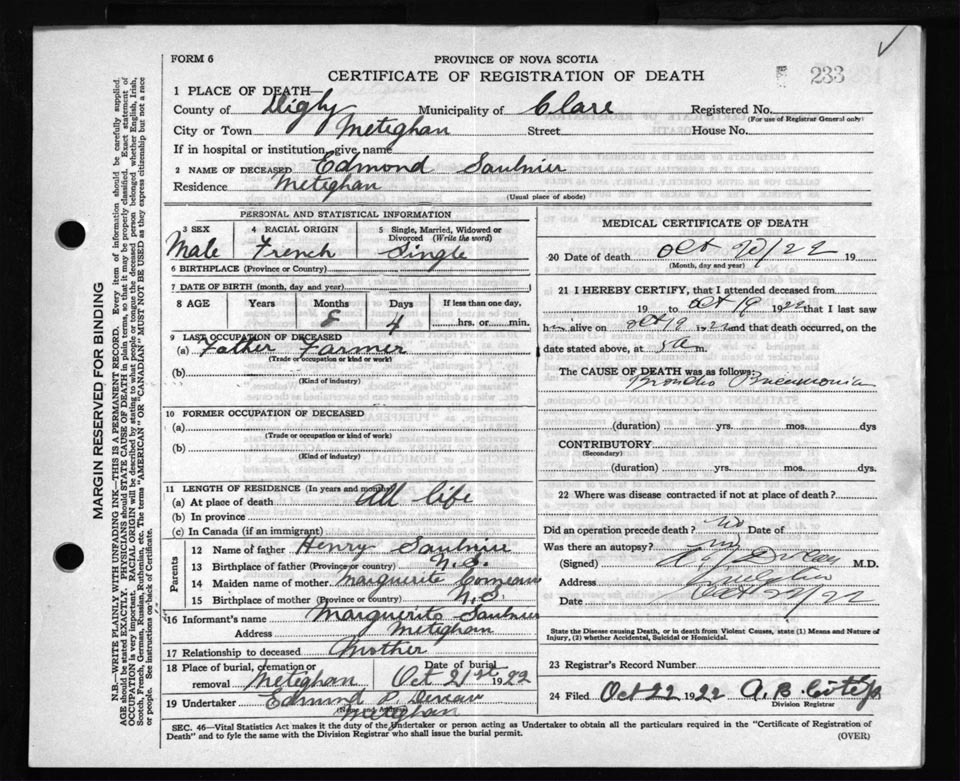 FORM 6
PROVINCE OF NOVA SCOTIA
CERTIFICATE OF REGISTRATION OF DEATH
233
1 PLACE OF DEATH—
County of Digby Municipality of Clare Registered No.
(For use of Registrar General only)
City or Town Meteghan Street House No.
If in hospital or institution, give name
2 NAME OF DECEASED Edmond Saulnier
Residence Meteghan
(Usual place of abode)
PERSONAL AND STATISTICAL INFORMATION
3 SEX 4 RACIAL ORIGIN 5 Single, Married, Widowed or Divorced (Write the word)
Male French Single
6 BIRTHPLACE (Province or Country)
7 DATE OF BIRTH (month, day and year)
8 AGE Years Months Days If less than one day,
8 4 hrs. or min.
9 LAST OCCUPATION OF DECEASED
(a) Father Farmer
(Trade or occupation or kind of work)
(b)
(Kind of industry)
10 FORMER OCCUPATION OF DECEASED
(a)
(Trade or occupation or kind of work)
(b)
(Kind of industry)
11 LENGTH OF RESIDENCE (In years and months)
(a) At place of death All life
(b) In province
(c) In Canada (if an immigrant)
Parents
12 Name of father Henry Saulnier
13 Birthplace of father (Province or country) N.S.
14 Maiden name of mother Marguerite Comeau
15 Birthplace of mother (Province or Country) N.S.
16 Informant's name Marguerite Saulnier
Address Meteghan
17 Relationship to deceased Mother
18 Place of burial, cremation or removal Meteghan Date of burial Oct 21st 1922
19 Undertaker Edmund P. Deveau
(Name and Address) Meteghan
MEDICAL CERTIFICATE OF DEATH
20 Date of death Oct 20/22 19
(Month, day and year)
21 I HEREBY CERTIFY, that I attended deceased from
19 to Oct 19 1922 that I last saw
him alive on Oct 19 1922 and that death occurred, on the
date stated above, at m.
The CAUSE OF DEATH was as follows:
Broncho Pneumonia
(duration) yrs. mos. dys
CONTRIBUTORY
(Secondary)
(duration) yrs. mos. dys.
22 Where was disease contracted if not at place of death?
Did an operation precede death? no Date of
Was there an autopsy? no
(Signed) M.D.
Address
Date Oct 22/22
State the Disease causing Death, or in death from Violent Causes, state (1) Means and Nature of Injury, (2) whether Accidental, Suicidal or Homicidal.
23 Registrar's Record Number
24 Filed Oct 22 1922 A. B.
Division Registrar
SEC. 46—Vital Statistics Act makes it the duty of the Undertaker or person acting as Undertaker to obtain all the particulars required in the "Certificate of Registration of
Death" and to fyle the same with the Division Registrar who shall issue the burial permit. (OVER)
MARGIN RESERVED FOR BINDING
N.B.—WRITE PLAINLY WITH UNFADING INK—THIS IS A PERMANENT RECORD. Every item of information should be carefully supplied.
AGE should be stated EXACTLY. PHYSICIANS should STATE CAUSE OF DEATH in plain terms, so that it may be properly classified. Exact statement of
OCCUPATION is very important. RACIAL ORIGIN will be described by stating to what people or tongue the deceased person belonged whether English, Irish,
Scotch, French, German, Russian, Ruthenian, etc. The terms "AMERICAN" or "CANADIAN" MUST NOT BE USED as they express citizenship but not a race
or people. See instructions on back of Certificate.